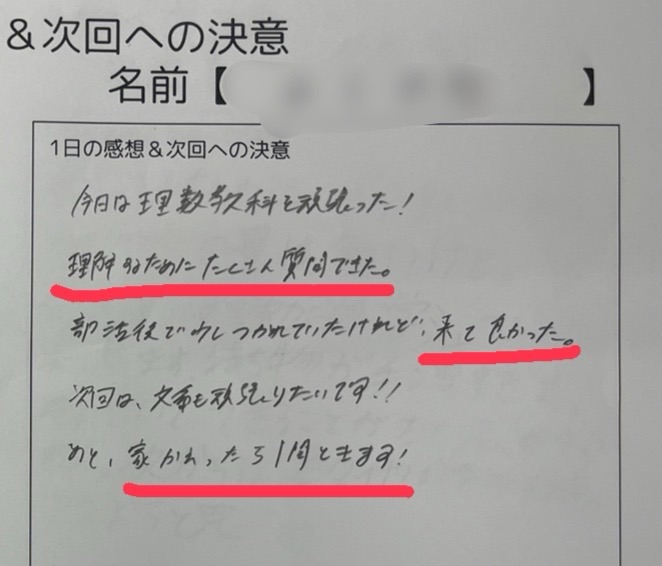 &次回への決意
名前【 】
1日の感想&次回への決意
今日は理数教科を頑張った!
理解するためにたくさん質問できた。
部活後で少しつかれていたけれど、来て良かった。
次回は、文系も頑張りたいです!!
あと、家かえったら1問ときます!